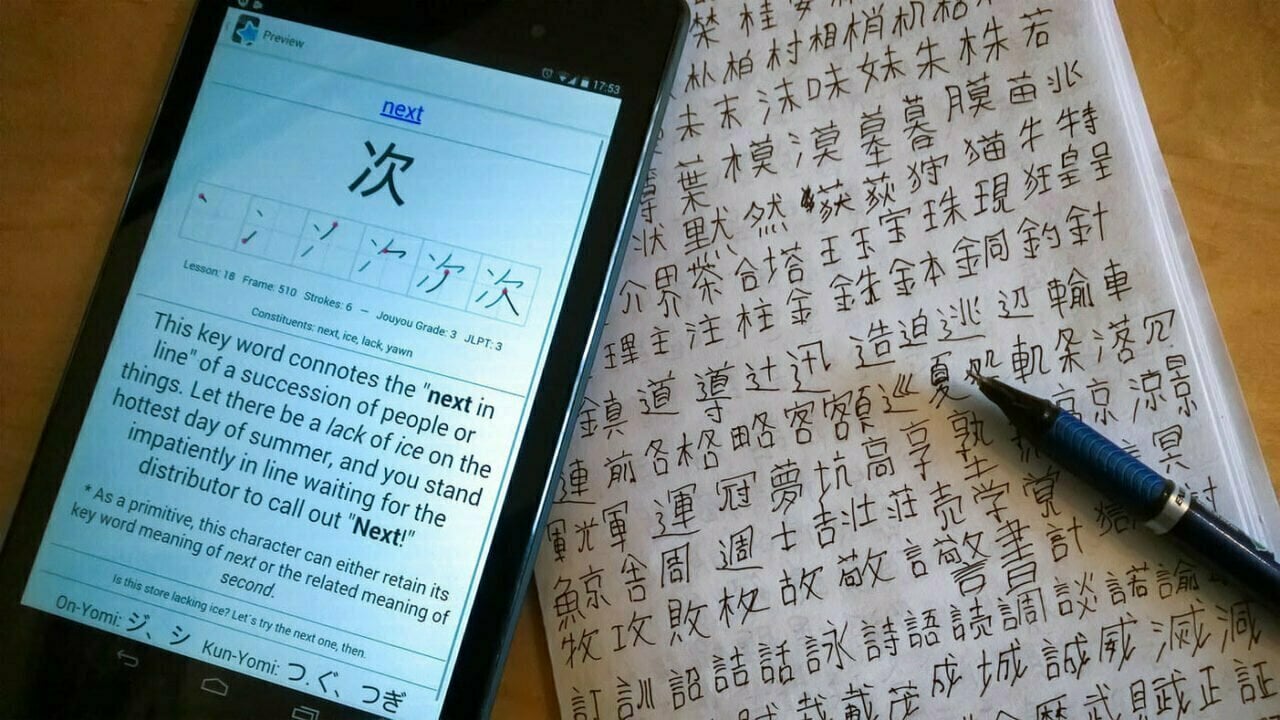 Preview
17:53
next
次
Lesson: 18 Frame: 510 Strokes: 6 – Jouyou Grade: 3 JLPT: 3
Constituents: next, ice, lack, yawn
This key word connotes the "next in
line" of a succession of people or
things. Let there be a lack of ice on the
hottest day of summer, and you stand
impatiently in line waiting for the
distributor to call out "Next!"
* As a primitive, this character can either retain its
key word meaning of next or the related meaning of
second.
Is this store lacking ice? Let's try the next one, then.
On-Yomi: ジ、シ Kun-Yomi: つ.ぐ、つぎ
桂
朴柏村相梢机
未末沫味妹朱株若
葉模漠墓暮膜苗兆
状黙然荻狩猫牛特
介界茶合塔王玉宝珠現狂皇呈
理主注柱金銑鉢銅釣針
鎮道導辻迅造迫逃辺輸車
連前各格略客額巡夏処軌条落冗
軍光軍運冠夢坑高享塾京涼景
鯨舎周週士吉壮荘売学覚冥
牧攻敗枚故敬言警書計
訂訓詔詰話詠詩語読調談諾諭
成城誠威滅減
武賊正証